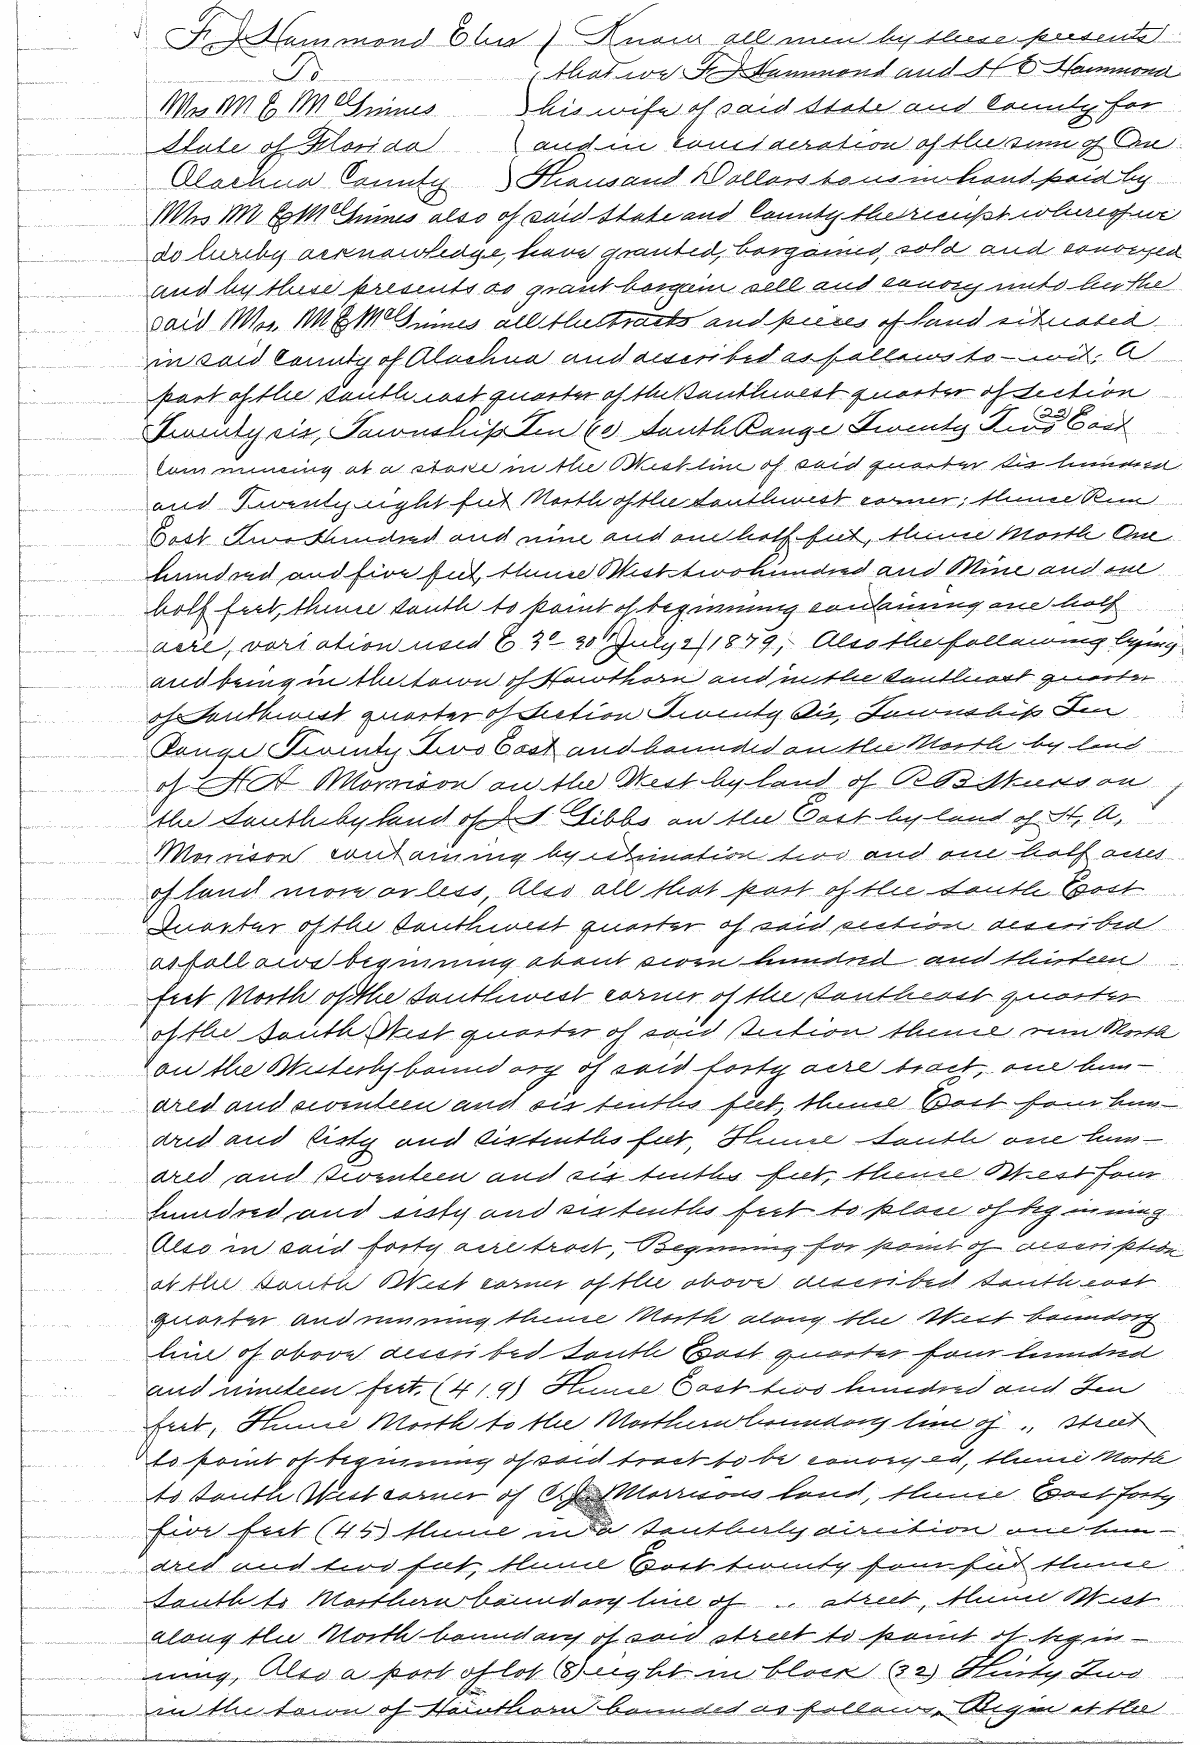 F J Hammond Etux ) Know all men by these presents
To ( that we F J Hammond and H E Hammond
Mrs M E McGinnes ) his wife of said State and County for
State of Florida ( and in consideration of the sum of One
Alachua County ) Thousand Dollars to us in hand paid by
Mrs M E McGinnes also of said State and County the receipt whereof we
do hereby acknowledge, have granted, bargained, sold and conveyed
and by these presents do grant bargain sell and convey unto her the
said Mrs. M E McGinnes all the tracts and pieces of land situated
in said County of Alachua and described as follows to-wit, A
part of the South east quarter of the Southwest quarter of Section
Twenty six, Township Ten (10) South Range Twenty Two (22) East
Commencing at a stake in the West line of said quarter six hundred
and Twenty eight feet North of the Southwest corner; thence Run
East Two Hundred and nine and one half feet, thence North One
hundred and five feet, thence West two hundred and Nine and one
half feet, thence South to point of beginning containing one half
acre, variation used E 3° 30' July 2/1879, Also the following lying
and being in the town of Hawthorn and in the Southeast quarter
of Southwest quarter of Section Twenty Six, Township Ten
Range Twenty Two East and bounded on the North by land
of H A Morrison on the West by land of R B on
the South by land of J S Gibbs on the East by land of H, A,
Morrison containing by estimation two and one half acres
of land more or less, Also all that part of the South East
Quarter of the Southwest quarter of said section described
as follows beginning about seven hundred and thirteen
feet North of the Southwest corner of the Southeast quarter
of the South West quarter of said Section thence run North
on the Westerly boundary of said forty acre tract, one hun-
dred and seventeen and six tenths feet, thence East four hun-
dred and sixty and six tenths feet, Thence South one hun-
dred and seventeen and six tenths feet, thence West four
hundred and sixty and six tenths feet to place of beginning
Also in said forty acre tract, Beginning for point of description
at the South West corner of the above described South east
quarter and running thence North along the West boundary
line of above described South East quarter four hundred
and nineteen feet, (419) Thence East two hundred and Ten
feet, Thence North to the Northern boundary line of .. street
to point of beginning of said tract to be conveyed, thence North
to South West corner of Morrisons land, thence East forty
five feet (45) thence in a Southerly direction one hun-
dred and two feet, thence East twenty four feet thence
South to Northern boundary line of .. street, thence West
along the North boundary of said street to point of begin-
ning, Also a part of lot (8) eight in block (32) Thirty Two
in the town of Hawthorn bounded as follows, Begin at the